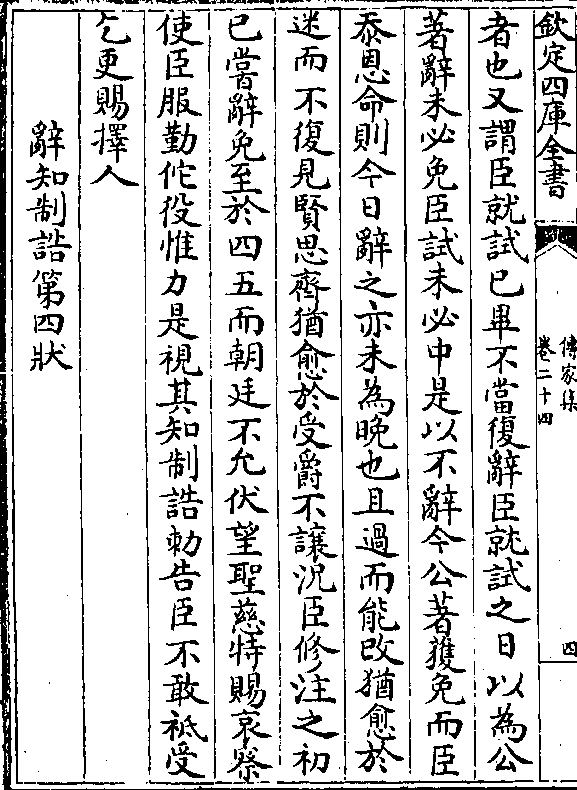 欽定四庫全書
傳家集
卷二十四
四
者也又謂臣就試已畢不當復辭臣就試之日以為公
著辭未必免臣試未必中是以不辭今公著獲免而臣
忝恩命則今日辭之亦未為晚也且過而能改猶愈於
迷而不復見賢思齊猶愈於受爵不讓況臣修注之初
已嘗辭免至於四五而朝廷不允伏望聖慈特賜哀察
使臣服勤佗役惟力是視其知制誥勅告臣不敢祗受
乞更賜擇人
辭知制誥第四狀